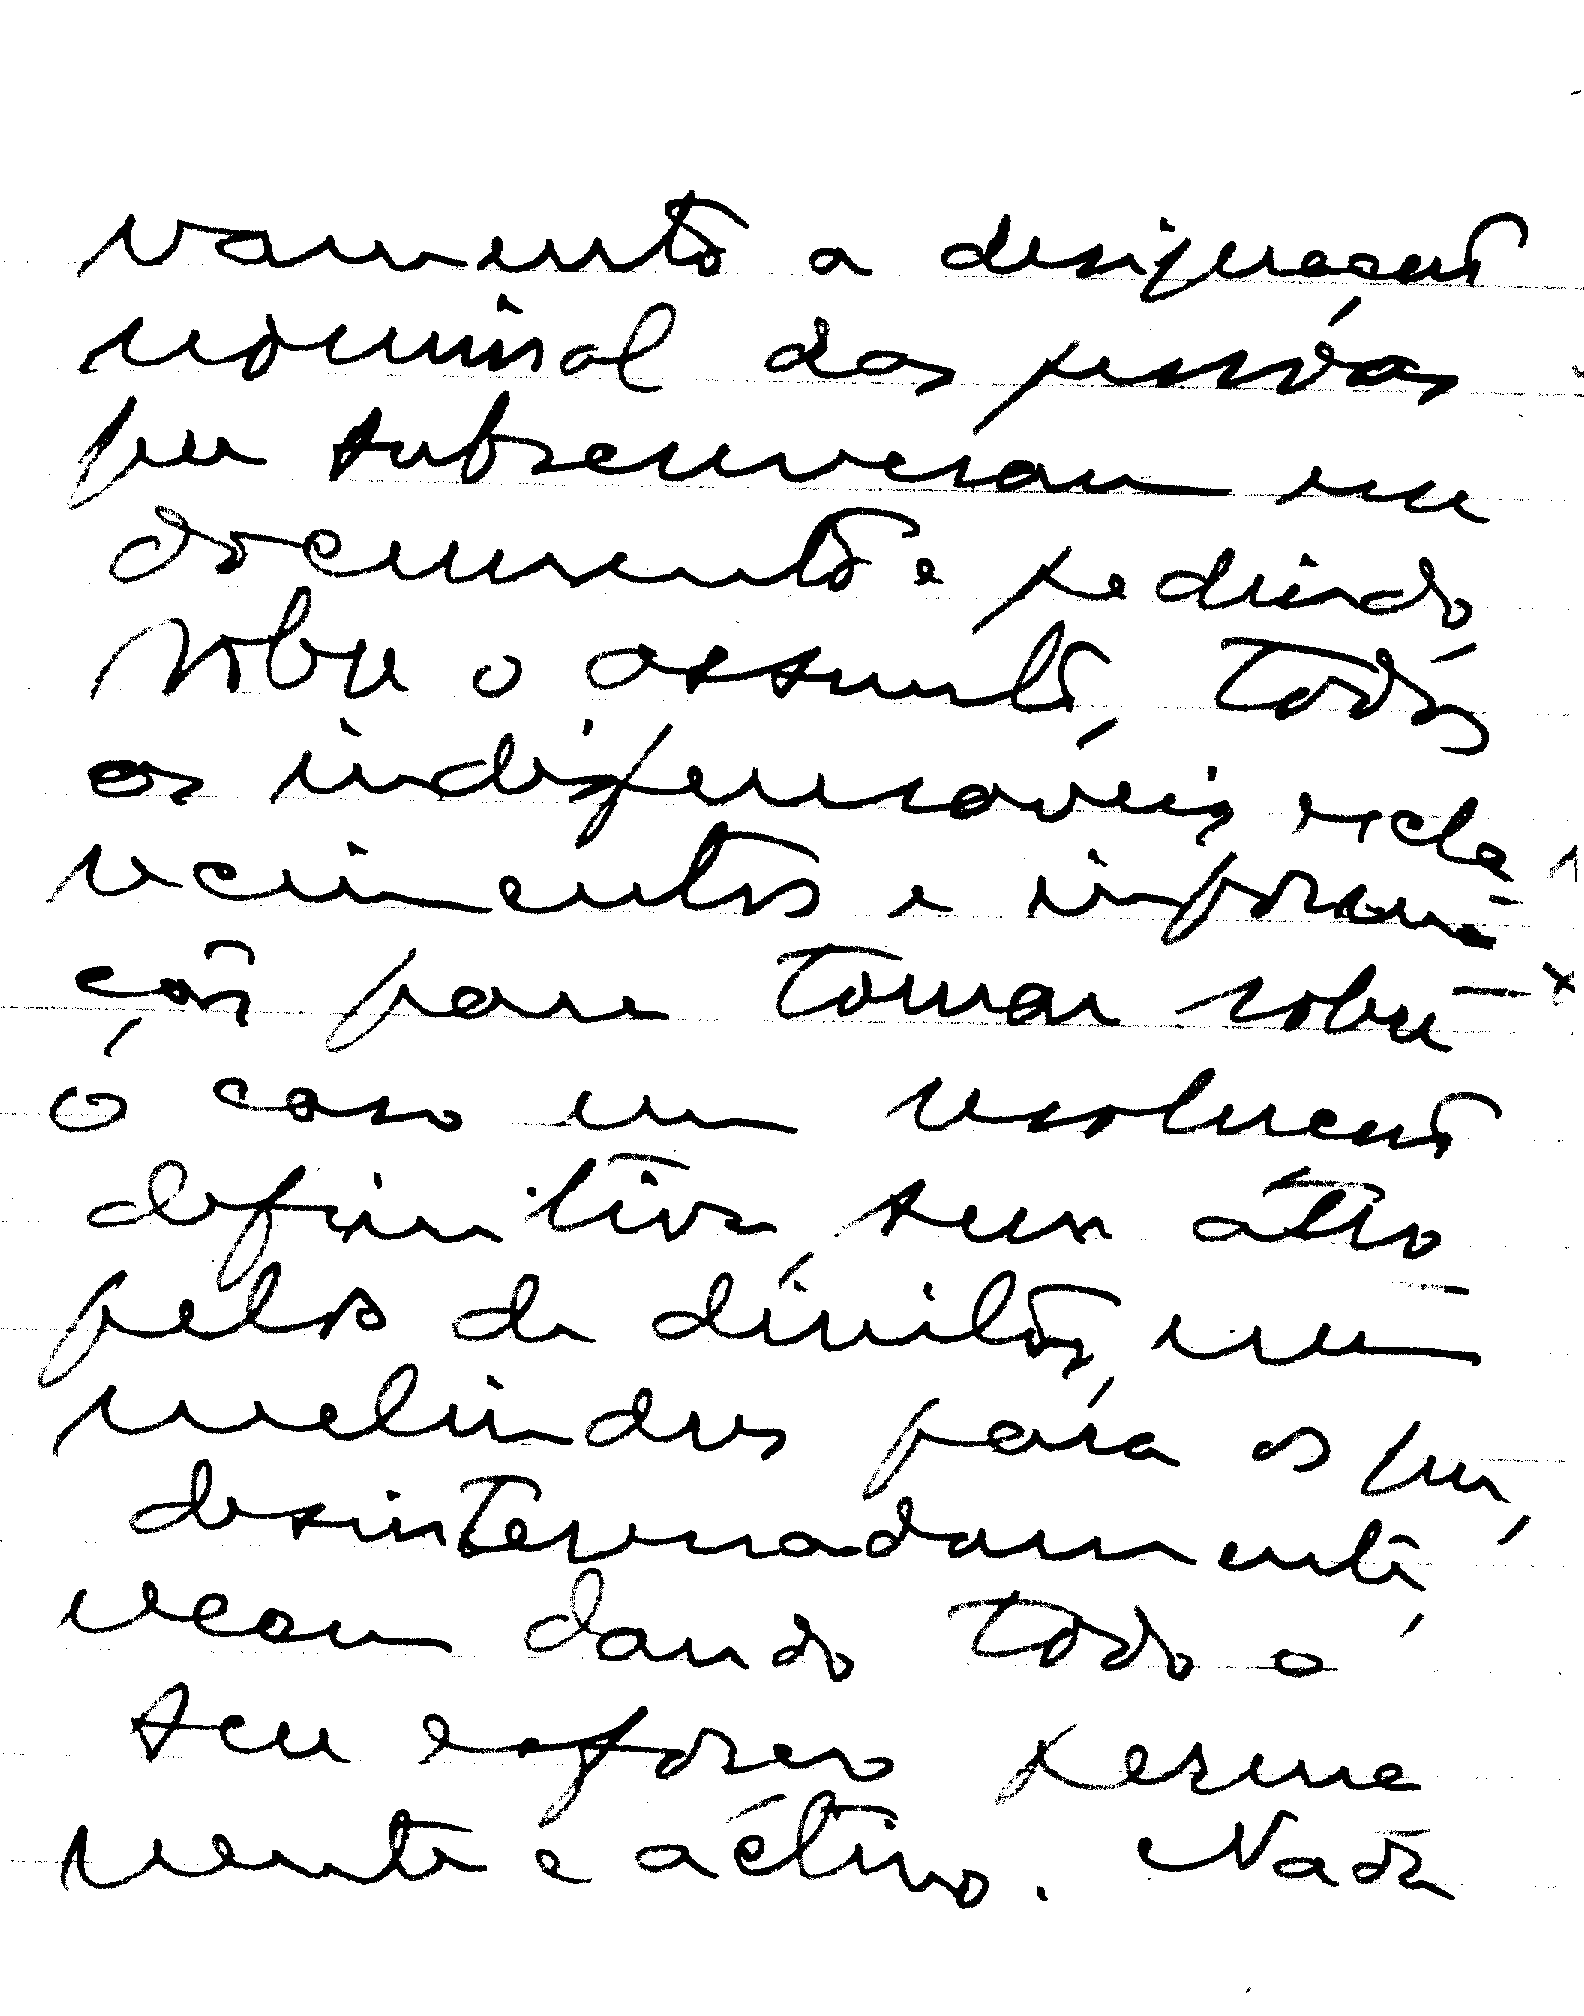 vamento a designação
nominal das pessôas,
que subscreveram esse
documento e pedindo
sobre o assunto, todos
os indispensáveis escla-
recimentos e informa-
ções para tomar sobre
o caso uma resolução
definitiva, sem atro-
pelos de direitos, nem
melindres para os que,
desinteressadamente,
vêem dando todo o
seu esforço perma
nente e activo. Nada